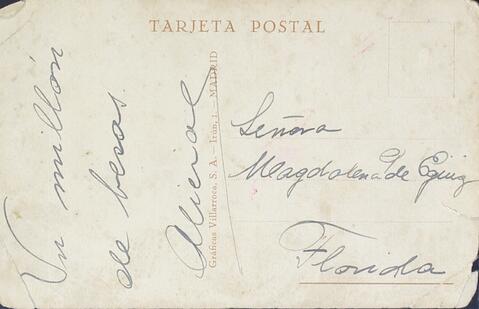 TARJETA POSTAL
Un millón
de besos.
Alicia
Gráficas Villarroca, S. A. — Irún, 1. — MADRID
Señora
Magdalena G de Eguig
Florida